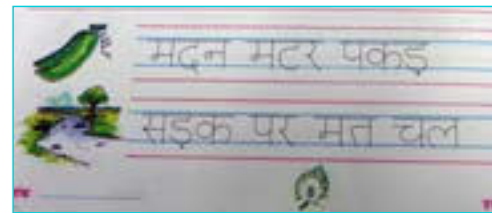 मदन मटर पकड़
सड़क पर मत चल